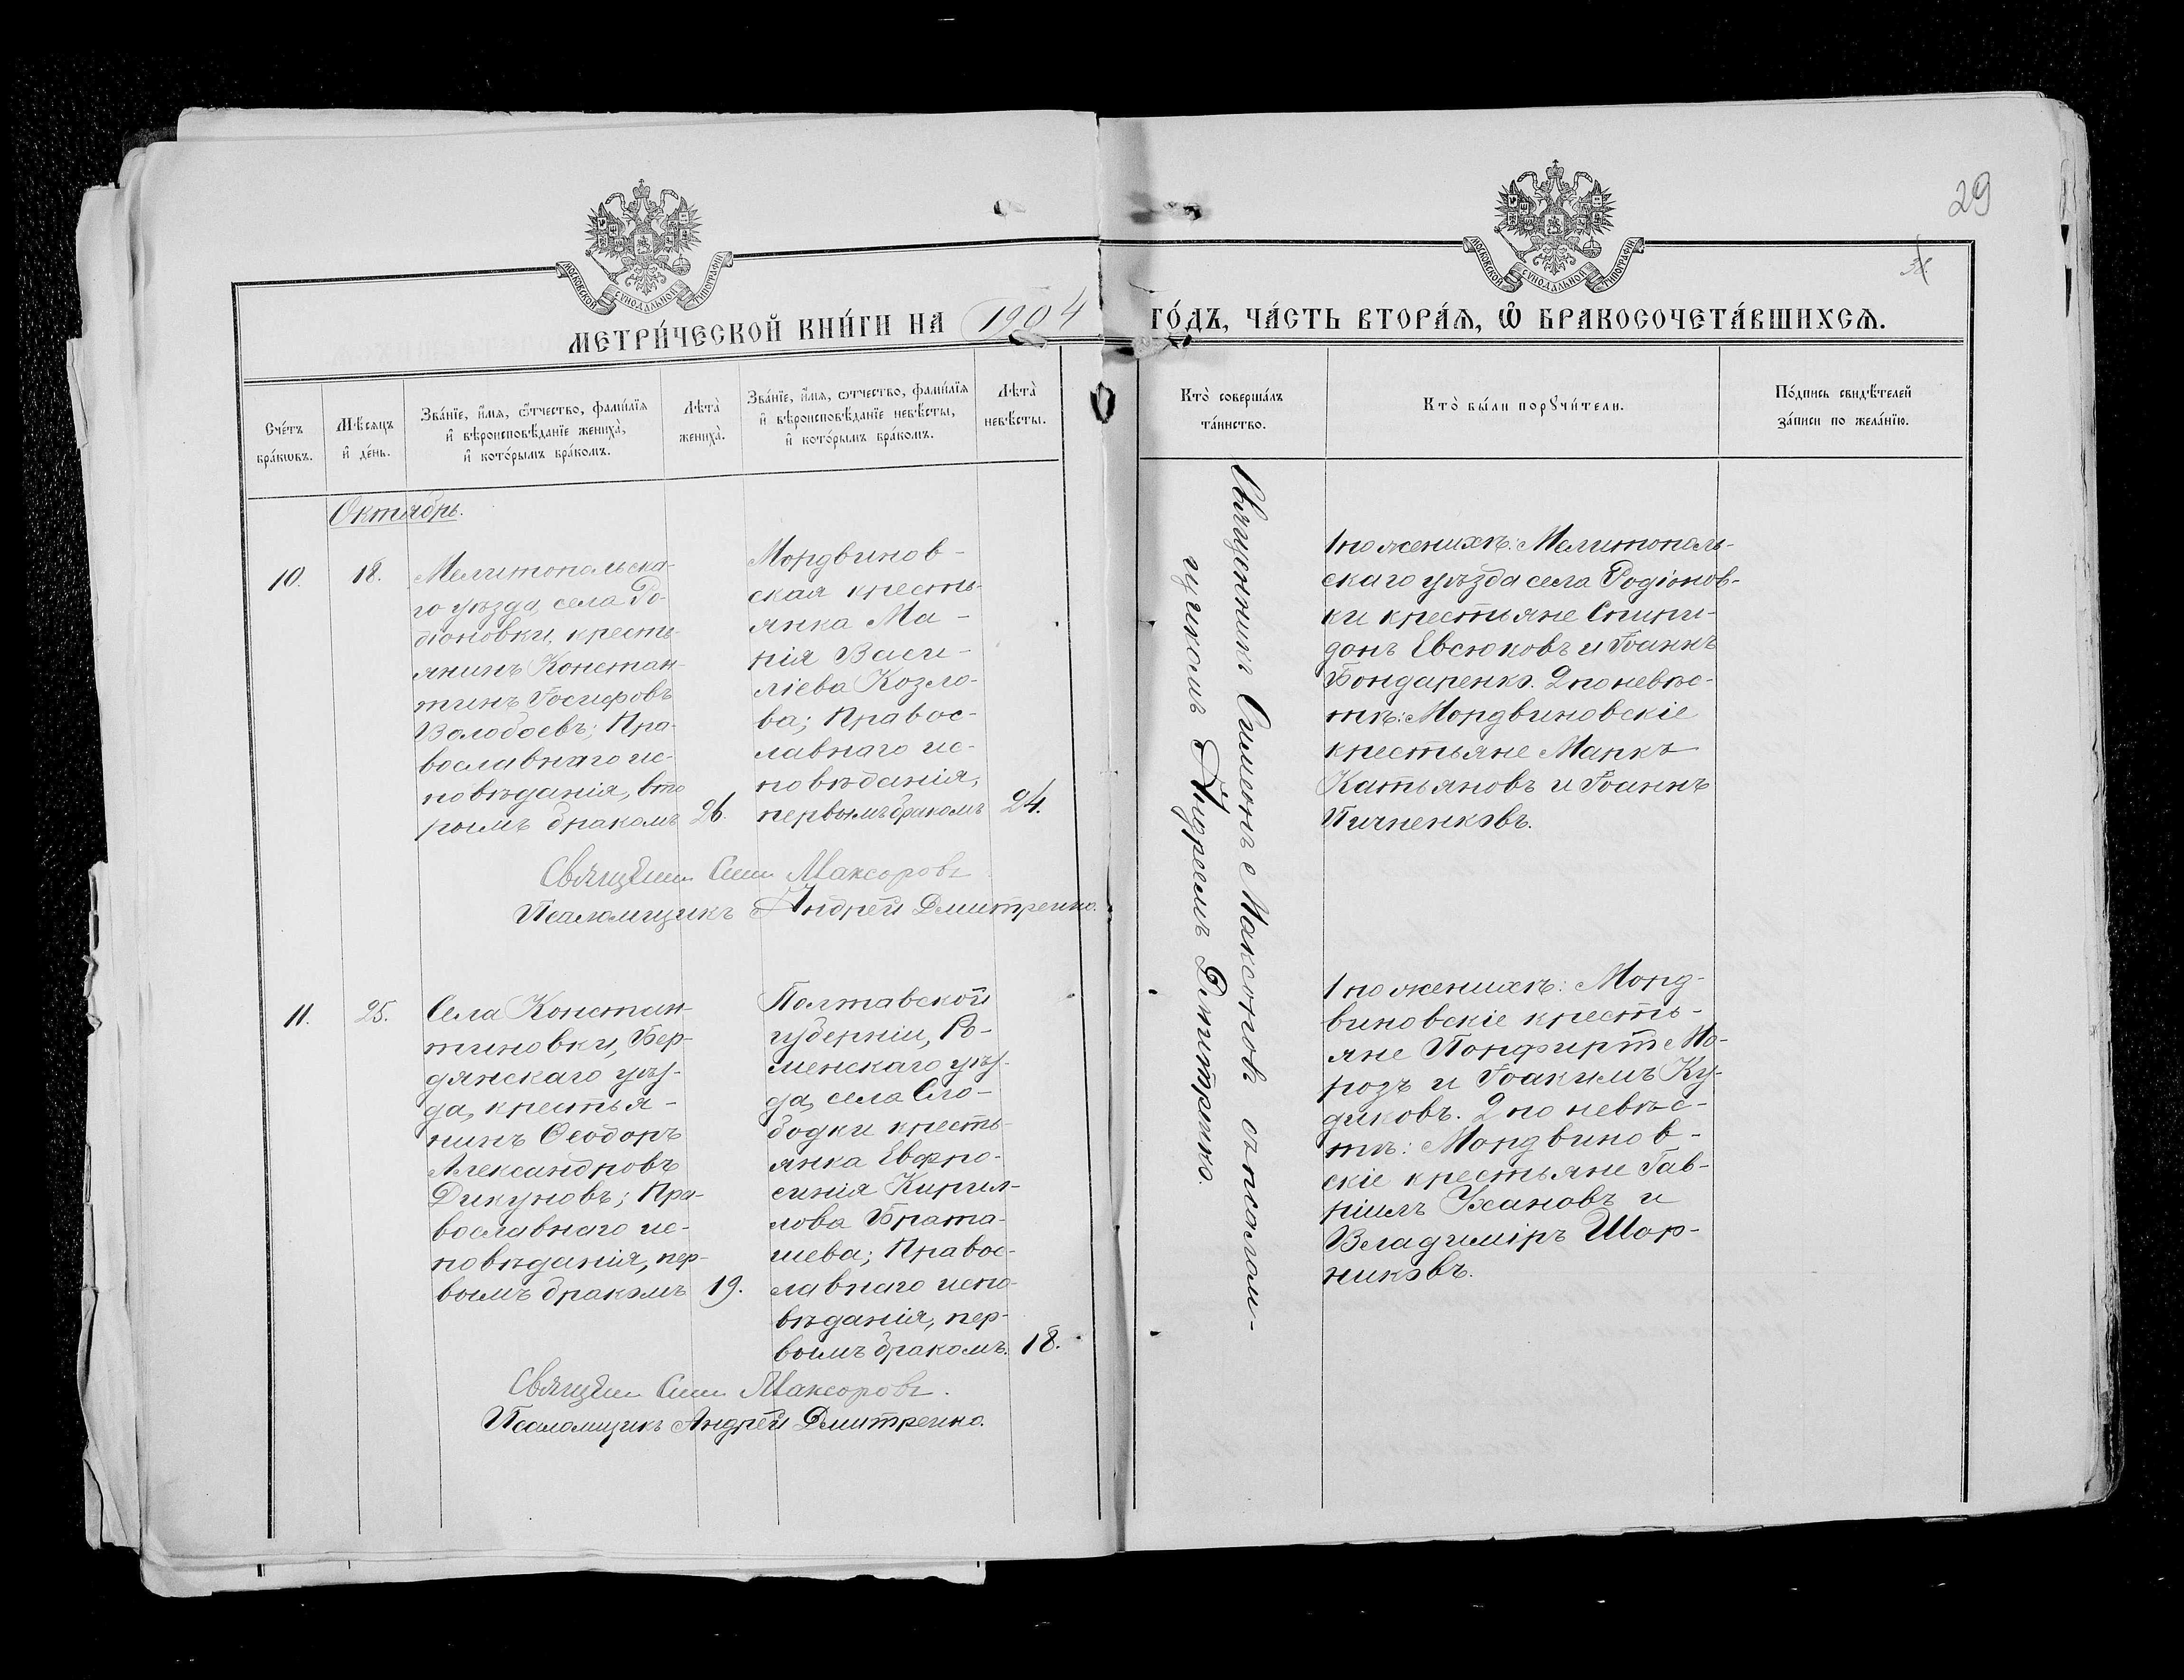 29
38.
МОСКОВСКОЙ СУНОДАЛЬНОЙ ТИПОГРАФІИ
МОСКОВСКОЙ СУНОДАЛЬНОЙ ТИПОГРАФІИ
МЕТРИ́ЧЕСКОЙ КНИ́ГИ НА 1904 ГО́ДЪ, ЧА́СТЬ ВТОРА́Ѧ, Ѽ БРАКОСОЧЕТА́ВШИХСѦ.
Сче́тъ
бра́кѡвъ.
Мѣ́сяцъ
и҆ де́нь.
Зва́нїе, и҆́мѧ, ѻ҆́тчество, фами́лїѧ
и҆ вѣроисповѣ́данїе жениха̀,
и҆ кото́рымъ бра́комъ.
Лѣта̀
жениха̀.
Зва́нїе, и҆́мѧ, ѻ҆́тчество, фами́лїѧ
и҆ вѣроисповѣ́данїе невѣ́сты,
и҆ кото́рымъ бра́комъ.
Лѣта̀
невѣ́сты.
Кто̀ соверша́лъ
та́инство.
Кто̀ бы́ли порꙋчи́тели.
По́дпись свидѣ́телей
за́писи по жела́нїю.
Октябрь.
10.
18.
Мелитопольска-
го уѣзда, села Ро-
діоновки, кресть-
янинъ Констан-
тинъ Іосифовъ
Волобоевъ; Пра-
вославнаго ис-
повѣданія, вто
рымъ бракомъ
26.
Мордвинов-
ская кресть-
янка Ма-
рія Васи-
ліева Козло-
ва; Правос-
лавнаго ис-
повѣданія,
первымъ бракомъ
24.
Священникъ Симеонъ Максоровъ съ псалом-
щикомъ Андреемъ Дмитренко.
1 по женихѣ: Мелитополь-
скаго уѣзда села Родіонов-
ки крестьяне Спири-
донъ Евсюковъ и Іоаннъ
Бондаренко. 2 по невѣс-
тѣ: Мордвиновскіе
крестьяне Маркъ
Катьяновъ и Іоаннъ
Пичпенковъ.
Священ. Сим. Максоровъ
Псаломщикъ Андрей Дмитренко.
11.
25.
Села Констан-
тиновки, Бер-
дянскаго уѣз-
да, крестья-
нинъ Ѳеодоръ
Александровъ
Дикуновъ; Пра-
вославнаго ис-
повѣданія, пер-
вымъ бракомъ
19.
Полтавской
губерніи, Ро-
менскаго уѣз-
да, села Сло-
бодки кресть-
янка Евфро-
синія Кирил-
лова Брата-
шева; Правос-
лавнаго испо-
вѣданія, пер-
вымъ бракомъ.
18.
1 по женихѣ: Морд-
виновскіе кресть-
яне Порфирій Мо-
розъ и Іоакимъ Ку-
диковъ. 2 по невѣс-
тѣ: Мордвинов-
скіе крестьяне Гав-
ріилъ Усановъ и
Владиміръ Шор-
никовъ.
Священ. Сим. Максоровъ.
Псаломщикъ Андрей Дмитренко.